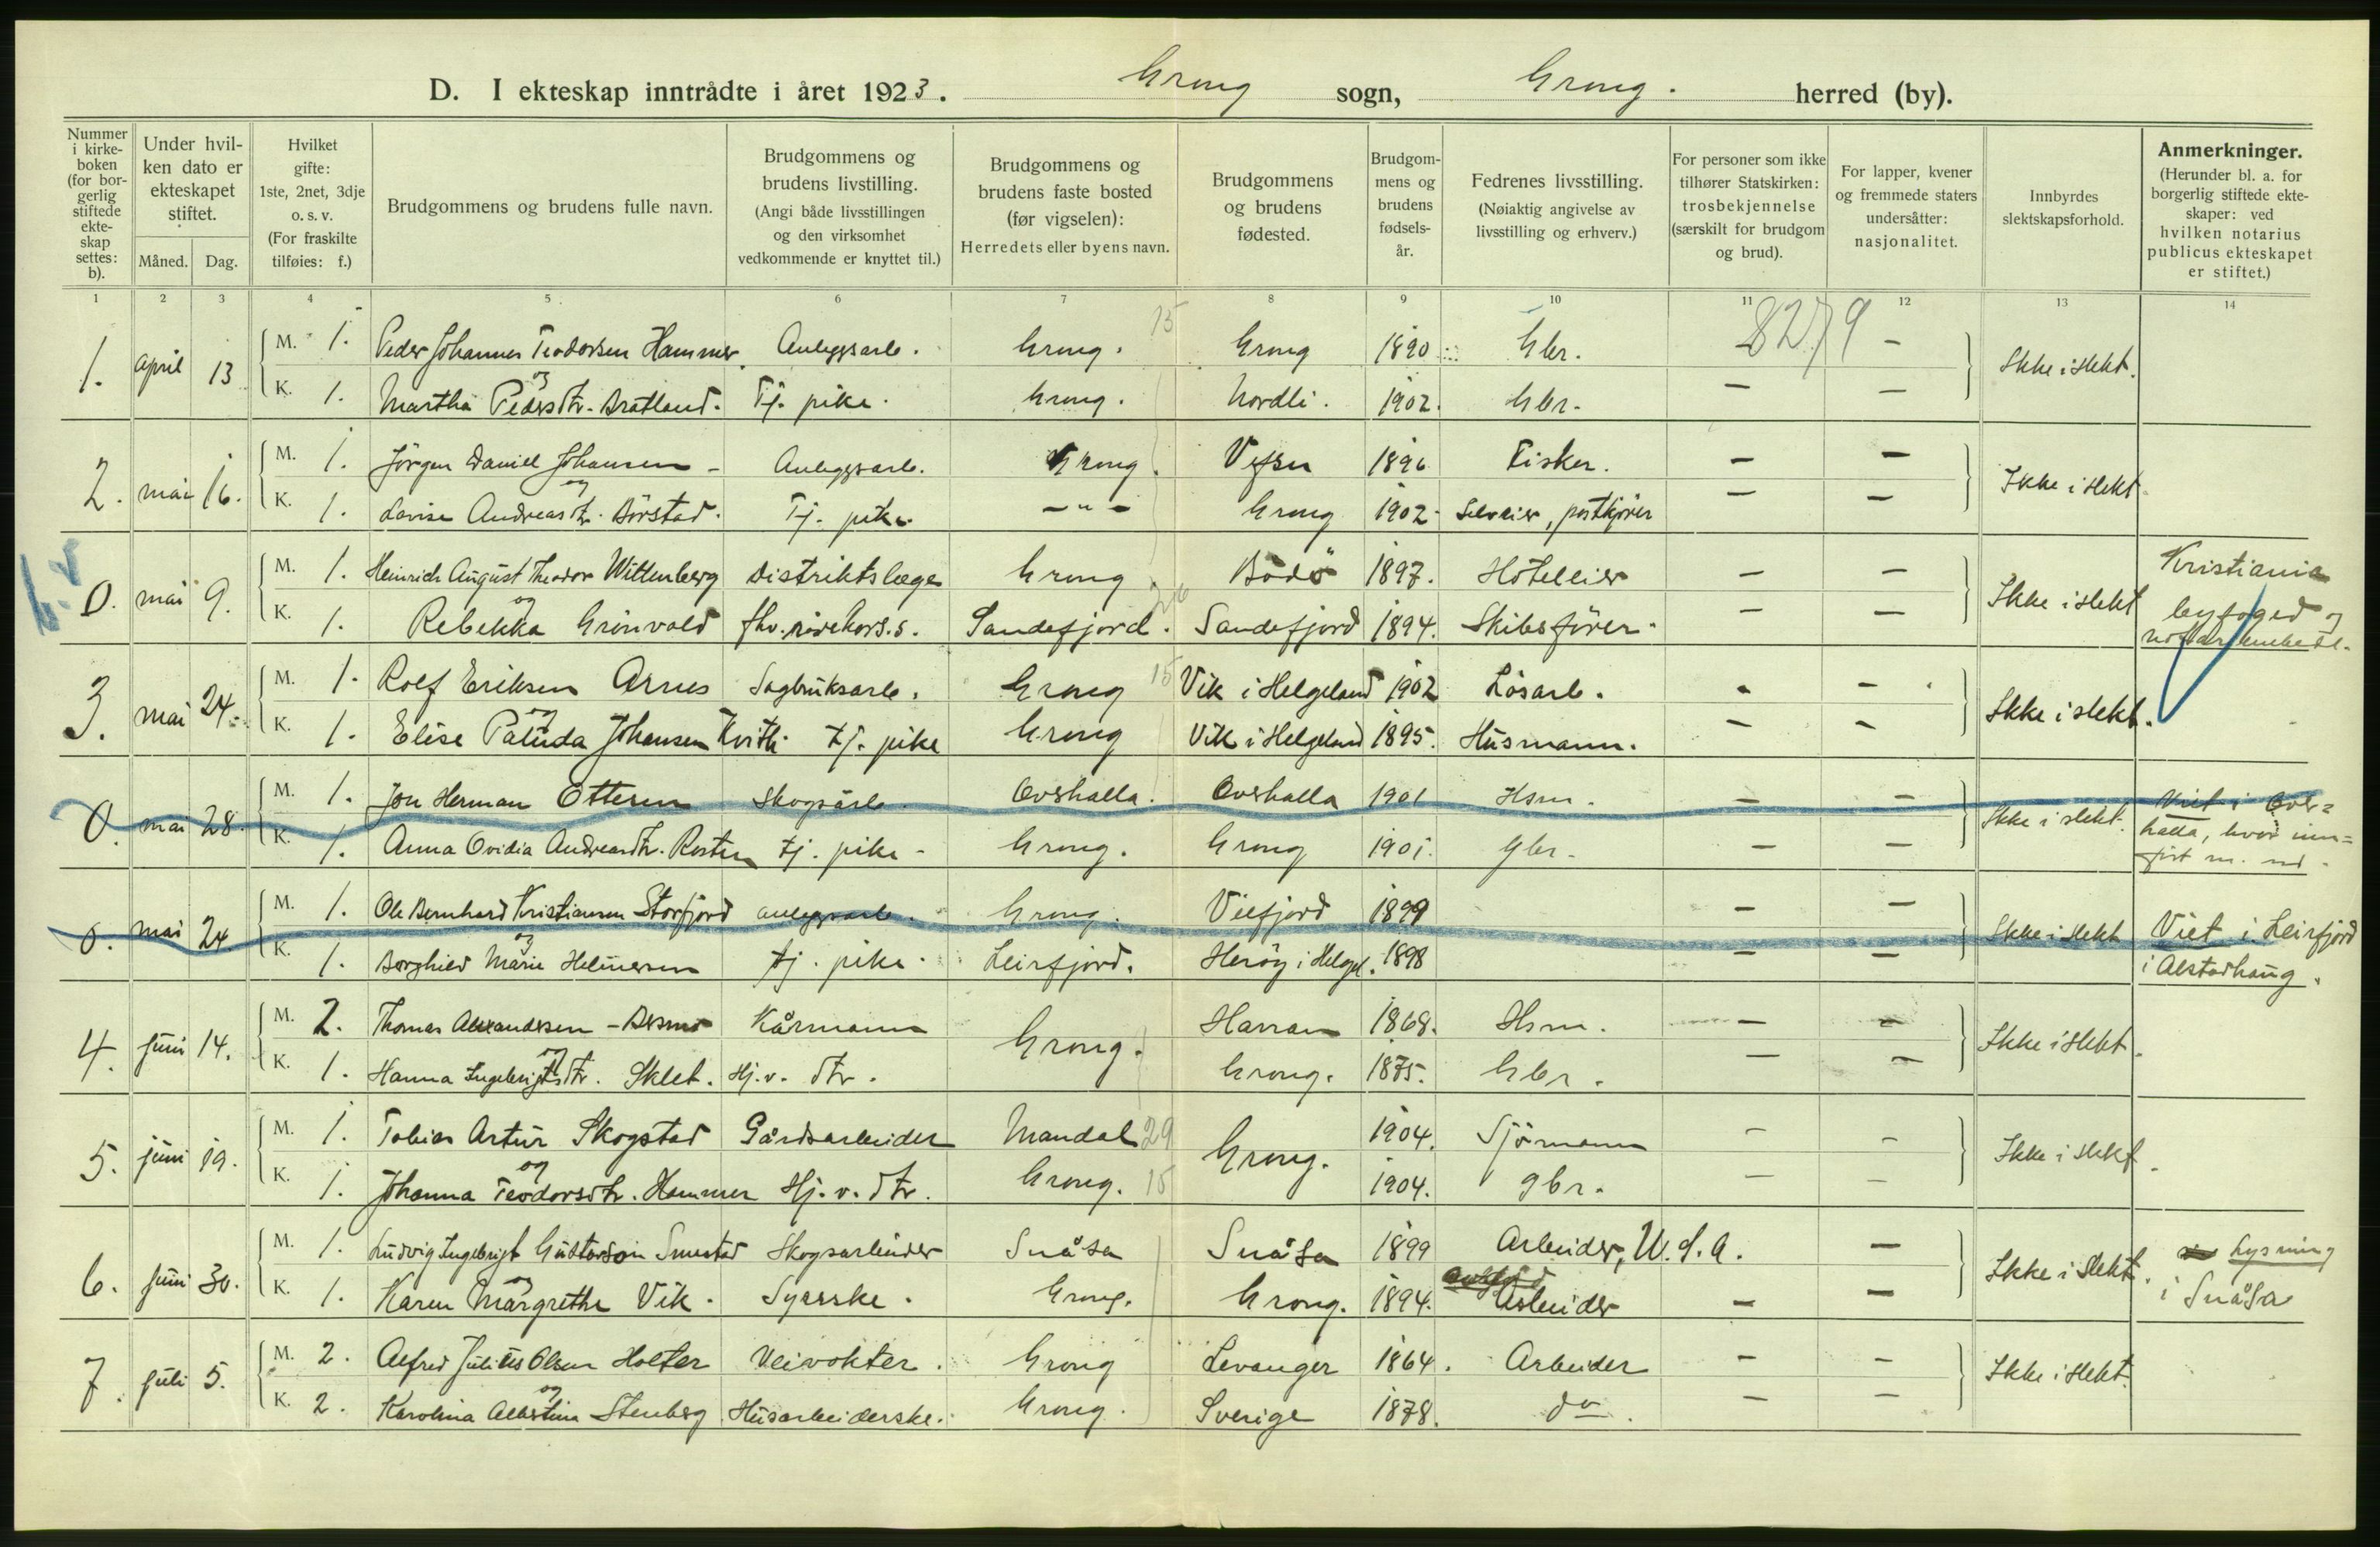 D. I ekteskap inntrådte i året 1923. Grong sogn, Grong. herred (by).
Nummer i kirkeboken (for borgerlig stiftede ekteskap settes: b).
Under hvilken dato er ekteskapet stiftet.
Måned. Dag.
Hvilket gifte: 1ste, 2net, 3dje o. s. v. (For fraskilte tilføies: f.)
Brudgommens og brudens fulle navn.
Brudgommens og brudens livstilling. (Angi både livsstillingen og den virksomhet vedkommende er knyttet til.)
Brudgommens og brudens faste bosted (før vigselen): Herredets eller byens navn.
Brudgommens og brudens fødested.
Brudgommens og brudens fødselsår.
Fedrenes livsstilling. (Nøiaktig angivelse av livsstilling og erhverv.)
For personer som ikke tilhører Statskirken: trosbekjennelse (særskilt for brudgom og brud).
For lapper, kvener og fremmede staters undersåtter: nasjonalitet.
Innbyrdes slektskapsforhold.
Anmerkninger. (Herunder bl. a. for borgerlig stiftede ekteskaper: ved hvilken notarius publicus ekteskapet er stiftet.)
1 2 3 4 5 6 7 8 9 10 11 12 13 14
8279
1. april 13 M. 1. Peder Johannes Teodorsen Hammer Anleggsarb. Grong. 15 Grong 1890 Gbr. - Ikke i slekt.
og
K. 1. Martha Pedersdtr. Bratland. Tj. pike. Grong. Nordli. 1902. Gbr. - -
2. mai 16. M. 1. Jörgen Daniel Johansen - Anleggsarb. Grong. Vefsn 1896 Fisker. - - Ikke i slekt
og
K. 1. Lovise Andreasdtr. Börstad. Tj. pike. - " - Grong 1902 Selveier, postkjörer - -
0. mai 9. M. 1. Heinrich August Theodor Wittenberg Distriktslæge Grong Bodö 1897. Hotelleier - - Ikke i slekt Kristiania
og
K. 1. Rebekka Grönvold fhv. rödekors.s. Sandefjord. Sandefjord 1894. Skibsförer. - - byfoged og
3. mai 24. M. 1. Rolf Eriksen Arnes Sagbruksarb. Grong 15 Vik i Helgeland 1902 Lösarb. - - Ikke i slekt.
og
K. 1. Elise Paluda Johansen Kvith. tj. pike Grong Vik i Helgeland 1895. Husmann. - -
0. mai 28. M. 1. Jon Herman Ottesen skogsarb. Overhalla. Overhalla 1901 Hsm. - - Ikke i slekt. Viet i Over=
K. 1. Anna Ovidia Andreasdtr. Rosten tj. pike - Grong. Grong 1901. gbr. - - halla, hvor inn=
0. mai 24. M. 1. Ole Bernhard Kristiansen Storfjord anleggsarb. Grong. Velfjord 1899 - - Ikke i slekt Viet i Leirfjord
og
K. 1. Borghild Marie Helmersen tj. pike. Leirfjord. Heröy i Helgel. 1898 - - i Alstadhaug.
4. juni 14. M. 2. Thomas Alexandersen - Bersmo Kårmann Grong. Harran 1868. Hsm. - - Ikke i slekt.
og
K. 1. Hanna Ingebrigtsdtr. Sklet. Hj.v. dtr. Grong. 1875. Gbr. - -
5. juni 19. M. 1. Tobias Artur Skogstad Gårdsarbeider Mandal 29 Grong. 1904. Sjömann - - Ikke i slekt.
og
K. 1. Johanna Teodorsdtr. Hammer Hj.v. dtr. Grong. 15 1904. gbr. - -
6. juni 30. M. 1. Ludvig Ingebrigt Gustavson Smestad Skogsarbeider Snåsa Snåsa 1899 Arbeider, U.S.A. - Ikke i slekt. Lysning
og
K. 1. Karen Margrethe Vik. Syerske. Grong. Grong. 1894. Arbeider - - i Snåsa
7. juli 5. M. 2. Alfred Julius Olsen Holter Veivokter. Grong Levanger 1864. Arbeider - - Ikke i slekt.
og
K. 2. Karolina Albertina Stenberg Husarbeiderske. Grong. Sverige 1878. do. - -